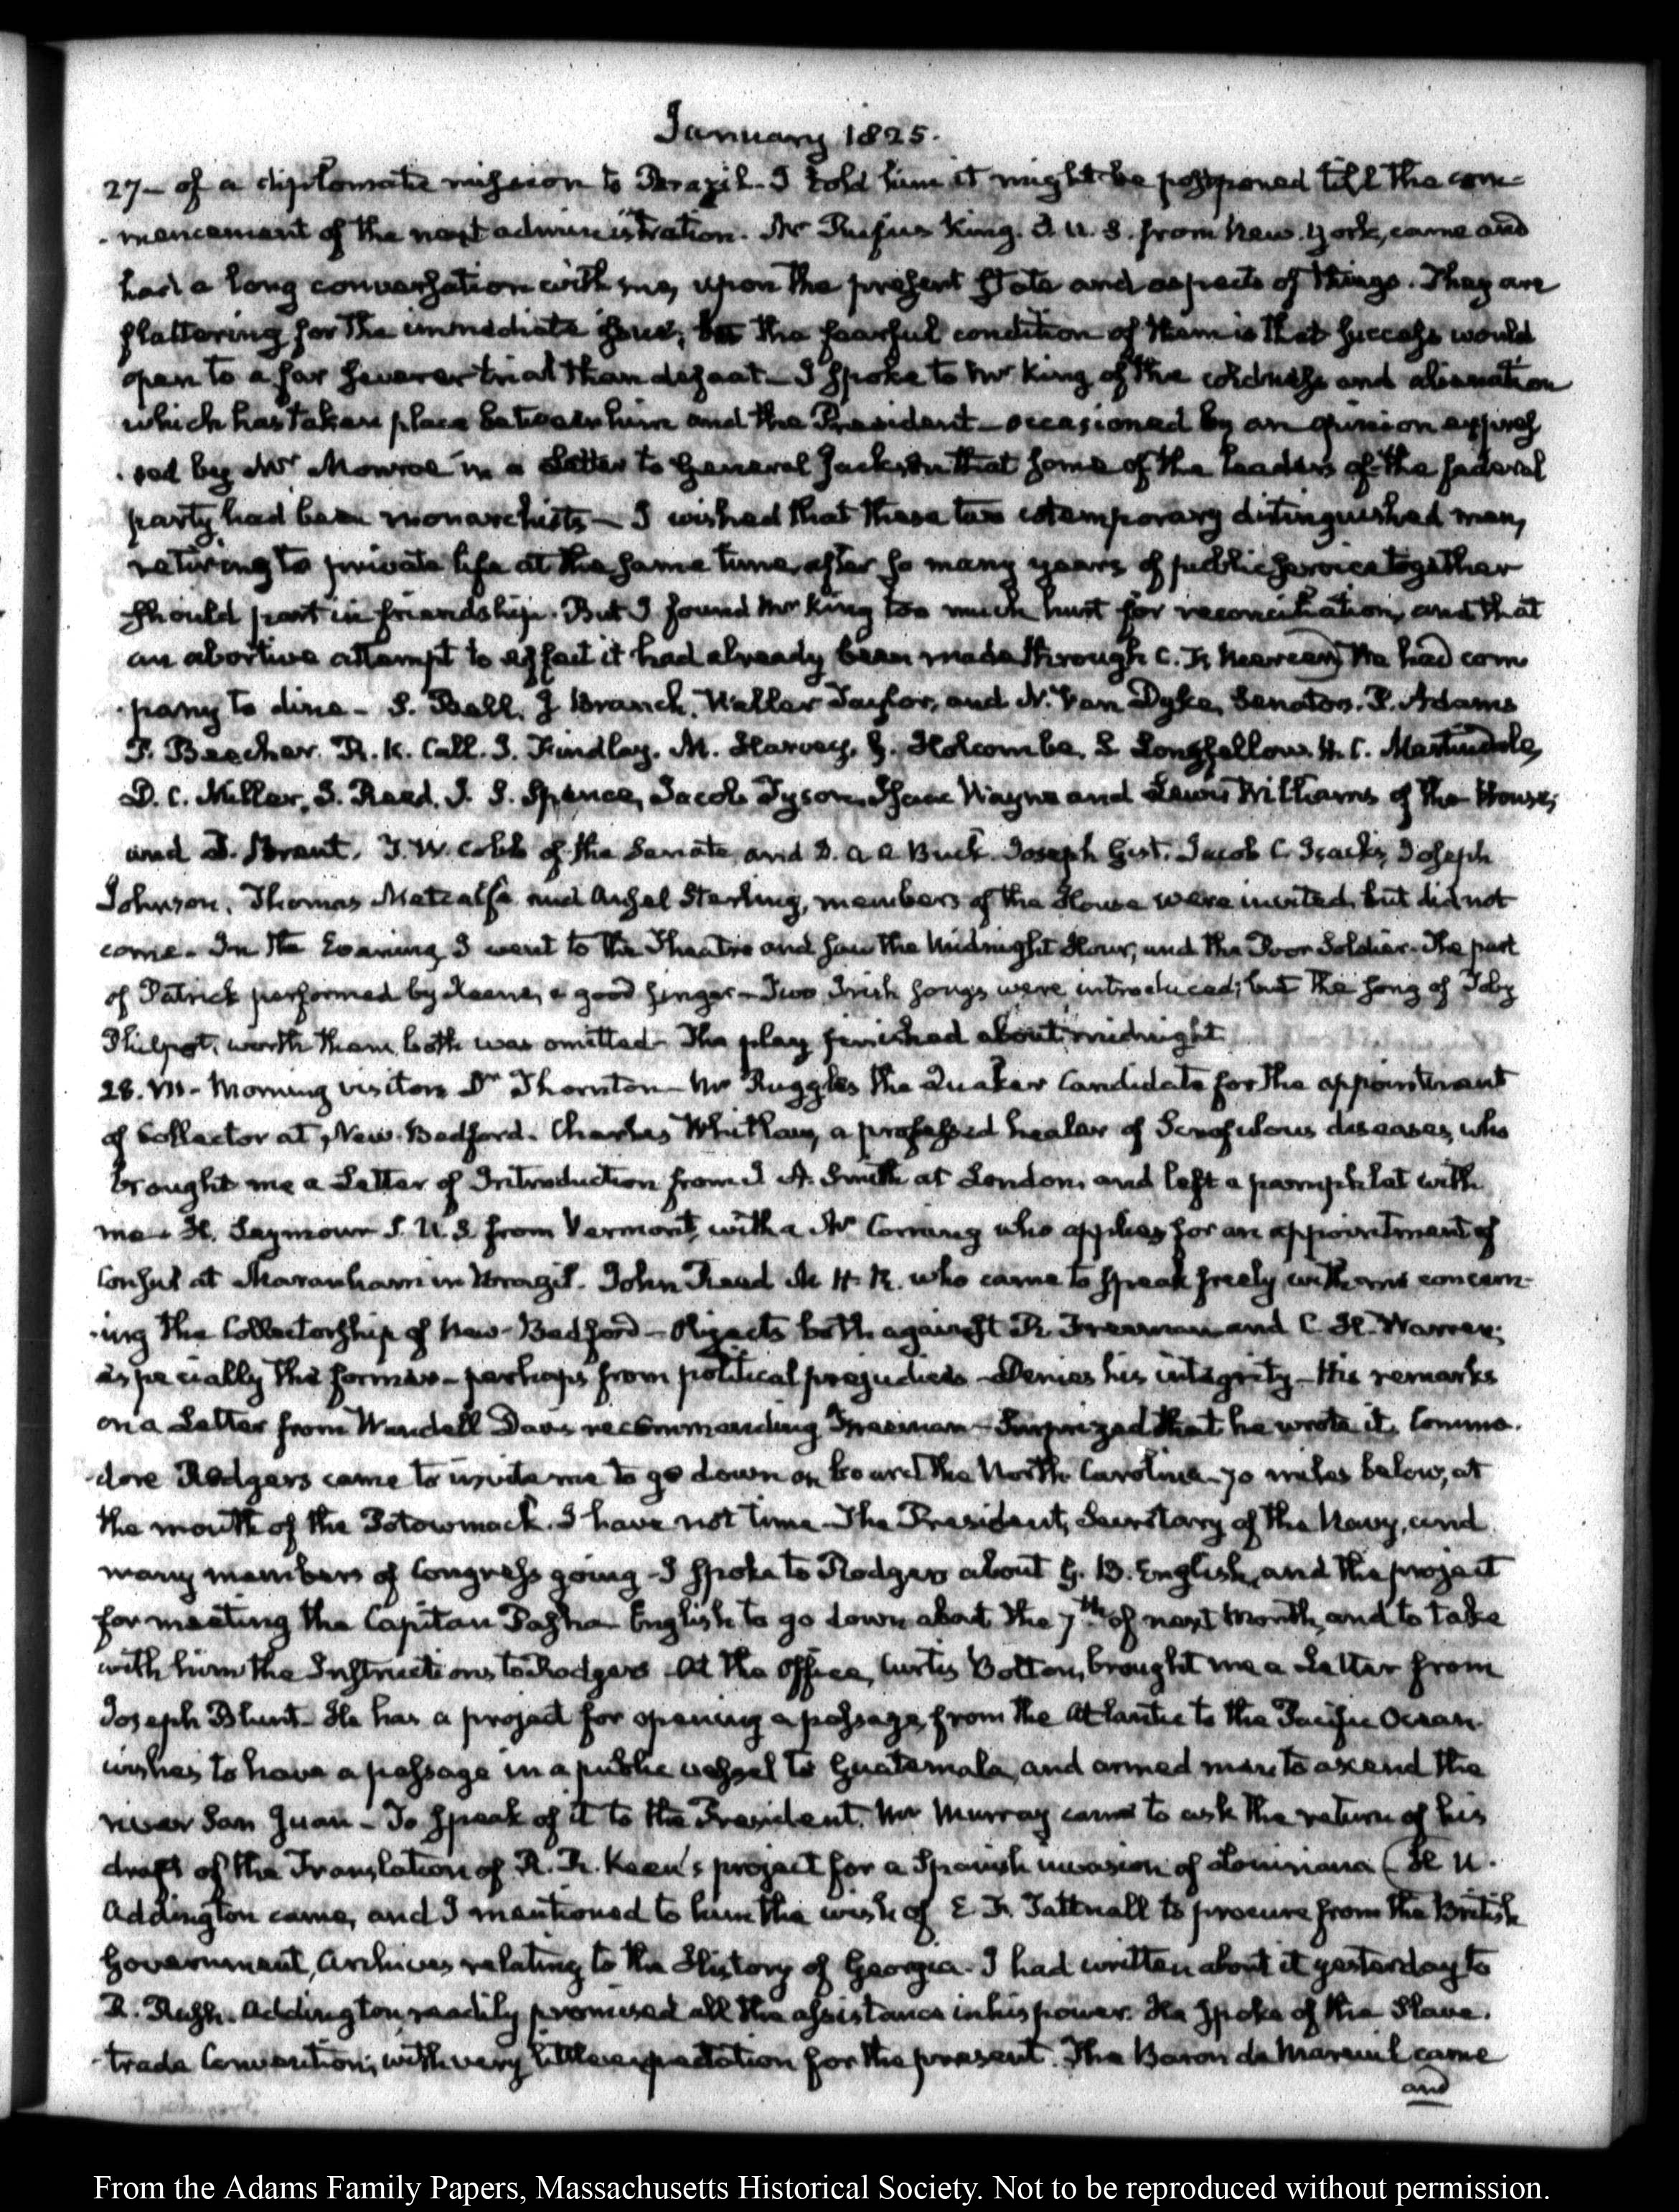 January 1825.
27– of a diplomatic mission to Brazil. I told him it might be postponed till the com-
-mencement of the next administration. Mr Rufus King. S. U. S. from New-York, came and
had a long conversation with me, upon the present state and aspects of things. They are
flattering for the immediate issue; but the fearful condition of them is that success would
open to a far severer trial than defeat– I spoke to Mr King of the coldness and alienation
which has taken place between him and the President– occasioned by an opinion expres
-sed by Mr Monroe in a Letter to General Jackson that some of the leaders of the federal
party had been monarchists– I wished that these two cotemporary distinguished men,
retiring to private life at the same time, after so many years of public service together
should part in friendship. But I found Mr King too much hurt for reconciliation, and that
an abortive attempt to effect it had already been made through C. F. Mercer) We had com
-pany to dine– S. Bell, J. Branch, Waller Taylor, and N. Van Dyke, Senators. P. Adams
P. Beecher. R. K. Call. J. Findlay. M. Harvey, G. Holcombe, S. Longfellow. H. C. Martindale,
D. C. Miller, J. Reed, J. S. Spence, Jacob Tyson, Isaac Wayne and Lewis Williams of the House;
and T. W. Cobb of the Senate, and D. A A Buck. Joseph Gist. Jacob C. Isacks, Joseph
Johnson, Thomas Metcalfe and Ansel Sterling, members of the House were invited, but did not
come. In the Evening I went to the Theatre and saw the Midnight Hour, and the Poor Soldier. The part
of Patrick performed by Keene, a good singer– Two Irish songs were introduced; but the song of Toby
Philpot, worth them both was omitted– The play finished about midnight.
28. VI– Morning visitors Dr Thornton– Mr Ruggles the Quaker Candidate for the appointment
of Collector at New-Bedford. Charles Whitlaw, a professed healer of Scrofulous diseases, who
brought me a Letter of Introduction from J A. Smith at London, and left a pamphlet with
me– H. Seymour S. U. S. from Vermont, with a Mr Corning who applies for an appointment of
Consul at Maranham in Brazil. John Reed M. H. R. who came to speak freely with me concern-
-ing the Collectorship of New-Bedford– Objects both against R. Freeman and C. H. Warren;
especially the former– perhaps from political prejudices– Denies his integrity– His remarks
on a Letter from Wendell Davis recommending Freeman– Surprized that he wrote it. Commo-
-dore Rodgers came to invite me to go down on board the North Carolina 70 miles below, at
the mouth of the Potowmack. I have not time– The President, Secretary of the Navy, and
many members of Congress going– I spoke to Rodgers about G. B. English, and the project
for meeting the Capitan Pasha– English to go down about the 7th of next Month, and to take
with him the Instructions to Rodgers– At the Office, Curtis Bolton, brought me a Letter from
Joseph Blunt– He has a project for opening a passage from the Atlantic to the Pacific Ocean–
wishes to have a passage in a public vessel to Guatemala, and armed men to ascend the
river San Juan– To speak of it to the President. Mr Murray came to ask the return of his
draft of the Translation of R. R. Keen's project for a Spanish invasion of Louisiana (H. U.
Addington came, and I mentioned to him the wish of E. F. Tattnall to procure from the British
Government, Archives relating to the History of Georgia– I had written about it yesterday to
R. Rush. Addington readily promised all the assistance in his power. He spoke of the Slave-
-trade Convention; with very little expectation for the present. The Baron de Mareuil came
and
From the Adams Family Papers, Massachusetts Historical Society. Not to be reproduced without permission.